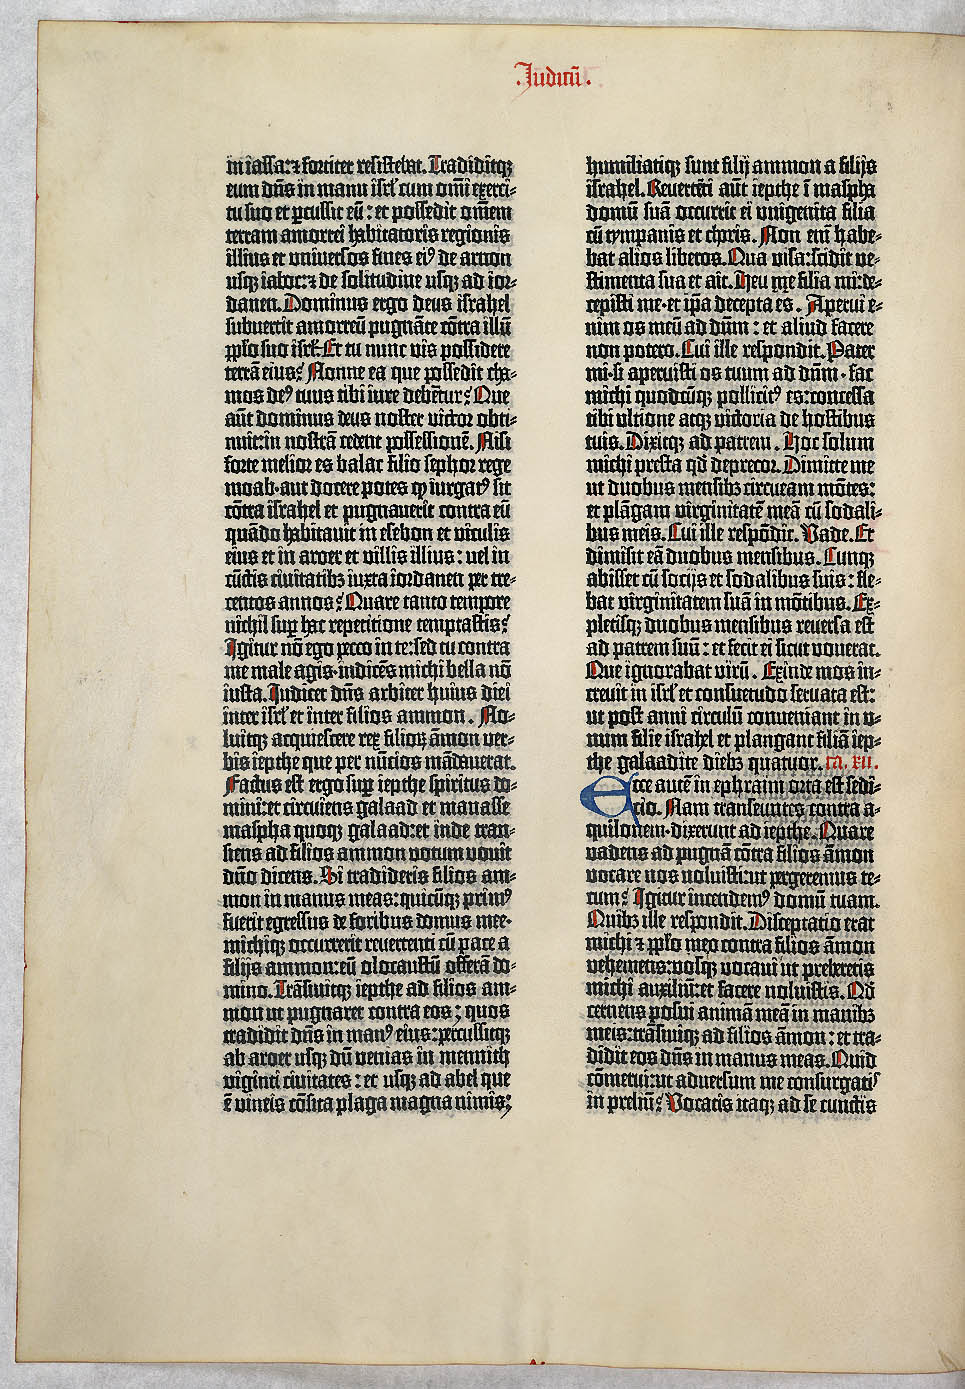 .Judicū.
in iassa:⁊ fortiter resistebat. Tradiditqꝫ
eum dn̄s in manu isrl̓ cum om̄i exerci-
tu suo et ꝑcussit eū: et possedit om̄em
terram amorrei habitatoris regionis
illius et universos fines eiꝰ de arnon
usqꝫ iaboc:⁊ de solitudine usqꝫ ad ior-
danen. Dominus ergo deus israhel
subvertit amorreū pugnāte cōtra illū
pp̄lo suo isrl̓. Et tu nunc vis possidere
terrā eius? Nonne ea que possedit cha-
mos deꝰ tuus tibi iure debētur? Que
aūt dominus deus noster victor obti-
nuit:in nostrā cedent possessionē. Nisi
forte melior es balac filio sephor rege
moab·aut docere potes ꝙ iurgatꝰ sit
cōtra israhel et pugnaverit contra eū
quādo habitavit in esebon et viculis
eius et in aroer et villis illius: vel in
cūctis civitatibꝫ iuxta iordanen per tre-
centos annos? Quare tanto tempore
nichil suꝑ hac repetitione temptastis?
Igitur nō ego pecco in te:sed tu contra
me male agis·indicēs michi bella nō
iusta. Judicet dn̄s arbiter huius diei
inter isrl̓ et inter filios ammon. No-
luitqꝫ acquiescere rex filioꝝ āmon ver-
bis iepthe que per nūcios mādaverat.
Factus est ergo suꝑ iepthe spiritus do-
mini:et circuiens galaad et manasse
maspha quoqꝫ galaad:et inde tran-
siens ad filios ammon votum vovit
dn̄o dicens. Si tradideris filios am-
mon in manus meas: quicūqꝫ primꝰ
fuerit egressus de foribus domus mee·
michiqꝫ occurrerit revertenti cū pace a
filijs ammon:eū olocaustū offerā do-
mino. Trāsivitqꝫ iepthe ad filios am-
mon ut pugnaret contra eos; quos
tradidit dn̄s in manꝰ eius: percussitqꝫ
ab aroer usqꝫ dū venias in mennith
viginti civitates: et usqꝫ ad abel que
ē vineis cōsita plaga magna nimis;
humiliatiqꝫ sunt filij ammon a filijs
israhel. Revertēti aūt iepthe ī maspha
domū suā occurrit ei unigenita filia
cū tympanis et choris. Non enī habe-
bat alios liberos. Qua visa:scidit ve-
stimenta sua et ait. Heu me filia mi:de-
cepisti me·et ip̄a decepta es. Aperui e-
nim os meū ad dn̄m: et aliud facere
non potero. Cui ille respondit. Pater
mi·si aperuisti os tuum ad dn̄m·fac
michi quodcūqꝫ pollicitꝰ es:concessa
tibi ultione atqꝫ victoria de hostibus
tuis. Dixitqꝫ ad patrem. Hoc solum
michi presta qd̓ deprecor. Dimitte me
ut duobus mensibꝫ circueam mōtes:
et plāgam virginitatē meā cū sodali-
bus meis. Cui ille respōdit. Vade. Et
dimisit eā duobus mensibus. Cumqꝫ
abisset cū socijs et sodalibus suis: fle-
bat virginitatem suā in mōtibus. Ex-
pletisqꝫ duobus mensibus reversa est
ad patrem suū: et fecit ei sicut voverat.
Que ignorabat virū. Exinde mos in-
crevit in isrl̓ et consuetudo servata est:
ut post anni circulū conveniant in u-
num filie israhel et plangant filiā iep-
the galaadite diebꝫ quatuor. ca. xii.
Ecce autē in ephraim orta est sedi-
cio. Nam transeuntes contra a-
quilonem·dixerunt ad iepthe. Quare
vadens ad pugnā cōtra filios āmon
vocare nos noluisti:ut pergeremus te-
cum? Igitur incendemꝰ domū tuam.
Quibꝫ ille respondit. Disceptatio erat
michi ⁊ pp̄lo meo contra filios āmon
vehemēs:vosqꝫ vocavi ut preberetis
michi auxiliū:et facere noluistis. Qd̓
cernens posui animā meā in manibꝫ
meis:trāsiviqꝫ ad filios āmon: et tra-
didit eos dn̄s in manus meas. Quid
cōmerui:ut adversum me consurgatꝭ
in preliū? Vocatis itaqꝫ ad se cunctis